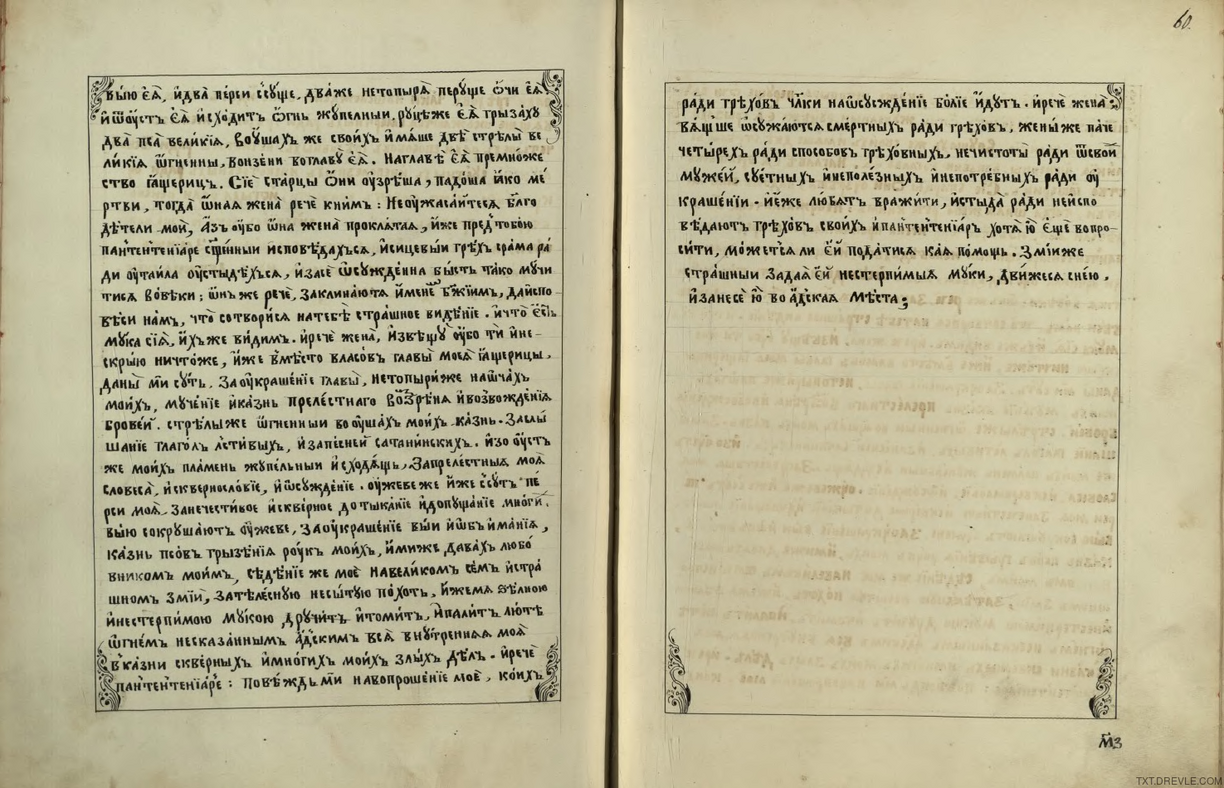 выю еѧ̀, и҆два̀ пе́рси ссꙋ́ще, два́же нетопы́рѧ пе́рꙋще ѻ҆́чи еѧ̀
и҆ѿоу҆́стъ еѧ̀ и҆схо́дитъ ѻ҆́гнь жꙋ́пелныи. рꙋцѣ́же еѧ̀ грыза́хꙋ
два̀ пса̀ вели́кїѧ, во́ушахъ же свои́хъ и҆мѧ́ше двѣ̀ стрѣ́лы ве
ли́кїѧ ѻ҆́гненны, вонзе́ни воглавꙋ̀ еѧ̀. Наглавѣ̀ еѧ̀ премно́же
ство ꙗ҆́щерицъ. Сїѐ ста́рцы ѻ҆́ни оу҆зрѣ́ша, падо́ша ꙗ҆́ко ме́
ртви, тогда̀ ѻ҆́ная жена̀ речѐ кни́мъ: Неоу҆жаса́йтесѧ бл҃го
дѣ́тели мои̑, А҆́зъ оу҆́бо ѻ҆́на жена̀ проклѧ́таѧ, и҆́же пред̾тобо́ю
пантентенїа́ре сщ҃е́нныи и҆сповѣ́дахъсѧ, и҆сицевы́и грѣ́хъ сра́ма ра́
ди оу҆таи́ла оу҆стыдѣ́хъсѧ, и҆засѐ ѡ҆сꙋжде́нна бы́сть та́ко мꙋ́чи
тисѧ во́вѣки: ѻ҆́нъ же речѐ, заклина́ютѧ и҆́менемъ бж҃їимъ, дай́спо
вѣ́си на́мъ, что̀ сотвори́сѧ натебѣ̀ стра́шное ви́дѣнїе. и҆что̀ є҆́сть
мꙋ́ка сїѧ̀, и҆́хъже ви́димъ. и҆речѐ жена̀, и҆звѣщꙋ̀ оу҆́бо ти̑ и҆не-
скры́ю ничто́же, и҆́же вмѣ́сто власо́въ главы̀ моеѧ̀ ꙗ҆́щерицы,
даны̀ ми̑ сꙋ́ть. Заоу҆краше́нїе главы̀, нетопы́риже наѻ҆ча́хъ
мои́хъ, мꙋче́нїе и҆ка́знь преле́стнаго воззрѣ́нѧ и҆возвожде́нїѧ
брове́й. стрѣ́лыже ѻ҆́гненныи во оу҆ша́хъ мои́хъ ка́знь. Заслы́
шанїе глаго́лъ ле́стивыхъ, и҆запѣ́сней сатани́нскихъ. и҆зо оу҆́стъ
же мои́хъ пла́мень жꙋ́пельныи и҆сходѧ́щь, Запреле́стныѧ моѧ̀
словеса̀, и҆сквернословїе, и҆ѡ҆сꙋжде́нїе. оу҆́жеве же и҆́же ссꙋ́тъ пе́
рси моѧ̀. Занечести́вое и҆скве́рное дотыка́нїе и҆допꙋща́нїе мно́ги.
вы́ю сокрꙋша́ютъ оу҆́жеве, Заоу҆краше́нїе вы́и и҆ѡ҆бъи҆ма́нїѧ,
ка́знь псо́въ грызе́нїѧ рꙋ́къ мои́хъ, и҆ми́же дава́хъ любо́
вникомъ мои́мъ, сѣдѣ́нїе же моѐ навели́комъ се́мъ и҆стра́
шномъ змі́и, Затѣле́сную несы́тую по́хоть, и҆́жемѧ ѕѣ́лною
и҆нестерпи́мою мꙋ́кою дрꙋчи́тъ и҆томи́тъ, и҆пали́тъ лю́тѣ
ѻ҆гне́мъ несказа́ннымъ а҆́дскимъ всѧ̀ внꙋ́тренняѧ моѧ̀
в̾ка́зни скве́рныхъ и҆мно́гихъ мои́хъ злы́хъ дѣ́лъ. и҆речѐ
пантентенїа́ре: повѣ́ждь ми̑ навопроше́нїе моѐ, ко́ихъ
60.
ра́ди грѣхо́въ чл҃ки наѡ҆сꙋжде́нїе бо́лїе и҆́дꙋтъ. и҆речѐ жена̀:
вѧ́щ̾ше ѡ҆сꙋжа́ютсѧ сме́ртныхъ ра́ди грѣхо́въ, же́ныже па́че
четы́рехъ ра́ди спо́собовъ грѣхо́вныхъ, нечистоты̀ ра́ди ѿсвои́
мꙋже́й, сꙋ́етныхъ и҆неполе́зныхъ и҆непотре́бныхъ ра́ди оу҆
краше́нїи. и҆е́же лю́бѧтъ вражи́ти, и҆стыда̀ ра́ди неи́спо
вѣ́даютъ грѣхо́въ свои́хъ и҆пантентенїа́ръ хотѧ̀ ю҆̀ е҆щѐ вопро-
си́ти, мо́жетсѧ ли е҆́й пода́тисѧ ка́ѧ по́мощь. Змі́иже
стра́шныи задаѧ̀ е҆́й нестерпи́мыѧ мꙋ́ки, дви́жесѧ сне́ю,
и҆занесѐ ю҆̀ во а҆́дскаѧ мѣ́ста;
м҃з
TXT.DREVLE.COM